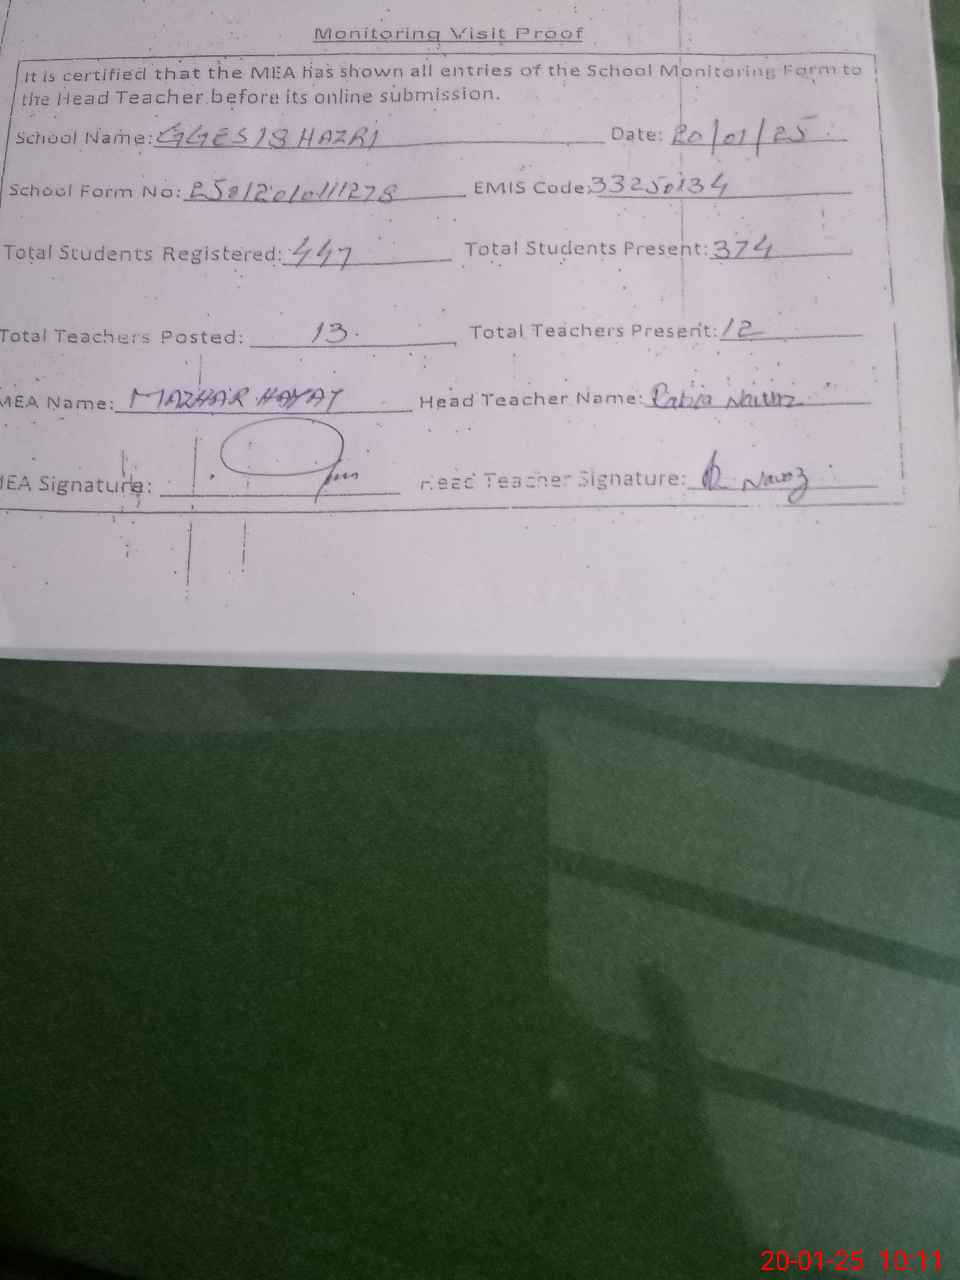 Monitoring Visit Proof
It is certified that the MEA has shown all entries of the School Monitoring Form to
the Head Teacher before its online submission.
School Name: GGES HAZRI Date: 20/01/25
School Form No: EMIS Code: 33250134
Total Students Registered: 447 Total Students Present: 374
Total Teachers Posted: 13 Total Teachers Present: 12
MEA Name: MAZHAR HAYAT Head Teacher Name: Rabia Nawaz
MEA Signature: Head Teacher Signature: R. Nawaz
20-01-25 10:11